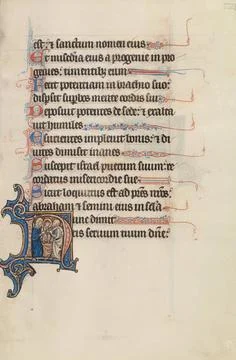 est: & sanctum nomen eius
Et misedia eius a progenie in pro
genies: timentib; eum
Fecit potentiam in brachio suo:
dispsit supbos mente cordis sui
Deposuit potentes de sede: & exalta
uit humiles
Esurientes impleuit bonis: & di
uites dimisit inanes
Suscepit israel puerum suum: re
cordatus misericordie sue
Sicut locutus est ad pres nros:
abraham & semini eius in secla
Nunc dimit
tis seruum tuum dne: